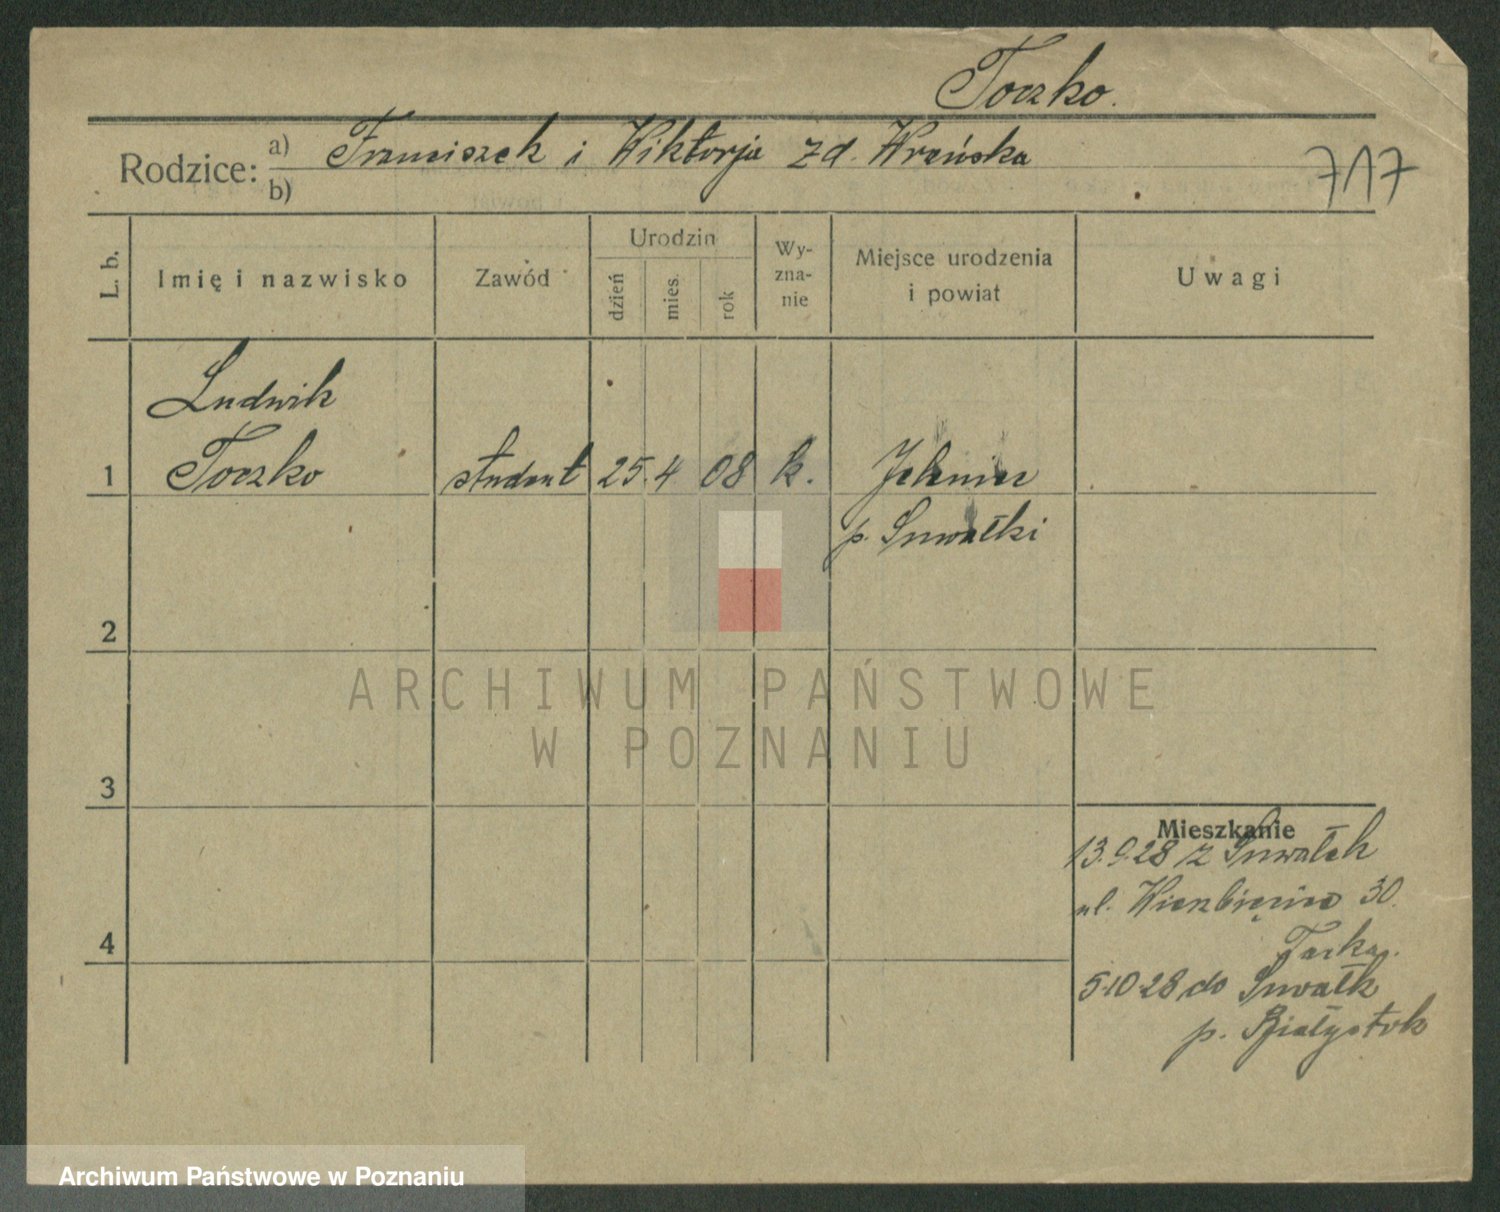 Toczko.
Rodzice: a) Franciszek i Wiktorja zd. Wrońska
b)
717
L. b. Imię i nazwisko Zawód Urodzin dzień mies. rok Wy-zna-nie Miejsce urodzenia i powiat Uwagi
Ludwik
1 Toczko student 25. 4 08 k.
p. Suwałki
2
ARCHIWUM PAŃSTWOWE
W POZNANIU
3
Mieszkanie
13.9.28 z Suwałk
ul. Wierzbięcice 30.
4
5.10.28 do Suwałk
p. Białystok
Archiwum Państwowe w Poznaniu